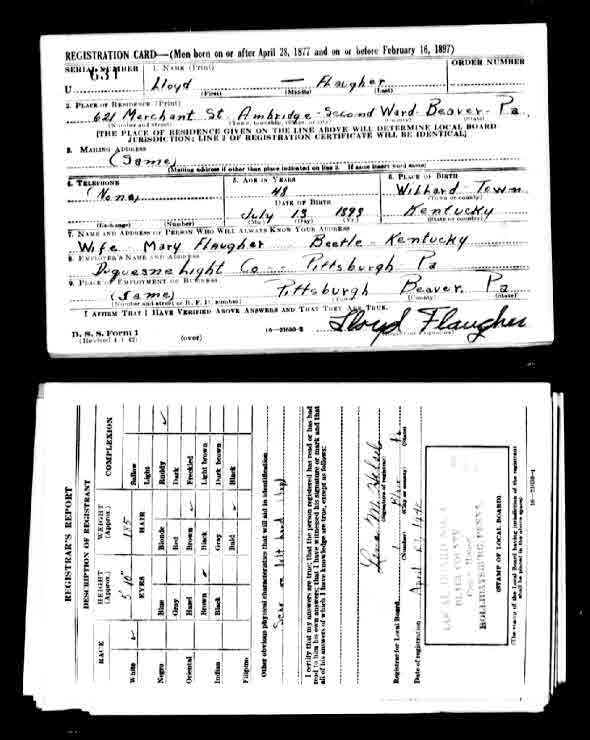 REGISTRATION CARD—(Men born on or after April 28, 1877 and on or before February 16, 1897)
SERIAL NUMBER 1. NAME (Print) ORDER NUMBER
U 631 Lloyd — Flaugher
(First) (Middle) (Last)
2. PLACE OF RESIDENCE (Print)
621 Merchant St. Ambridge - Second Ward - Beaver - Pa.
(Number and street) (Town, township, village, or city) (County) (State)
[THE PLACE OF RESIDENCE GIVEN ON THE LINE ABOVE WILL DETERMINE LOCAL BOARD
JURISDICTION; LINE 2 OF REGISTRATION CERTIFICATE WILL BE IDENTICAL]
3. MAILING ADDRESS
(Same)
[Mailing address if other than place indicated on line 2. If same insert word same]
4. TELEPHONE 5. AGE IN YEARS 6. PLACE OF BIRTH
(None) 48 Willard - Town
DATE OF BIRTH (Town or county)
July 13 1893 Kentucky
(Exchange) (Number) (Mo.) (Day) (Yr.) (State or country)
7. NAME AND ADDRESS OF PERSON WHO WILL ALWAYS KNOW YOUR ADDRESS
Wife - Mary Flaugher Beetle - Kentucky
8. EMPLOYER'S NAME AND ADDRESS
Duquesne Light Co - Pittsburgh - Pa
9. PLACE OF EMPLOYMENT OR BUSINESS
(Same) Pittsburgh Beaver. Pa
(Number and street or R. F. D. number) (Town) (County) (State)
I AFFIRM THAT I HAVE VERIFIED ABOVE ANSWERS AND THAT THEY ARE TRUE.
D. S. S. Form 1
(Revised 4-1-42) (over) 16—21630-2 Lloyd Flaugher
(Registrant's signature)
REGISTRAR'S REPORT
DESCRIPTION OF REGISTRANT
RACE HEIGHT (Approx.) WEIGHT (Approx.) COMPLEXION
White ✓ 5' 10" 185 Sallow
EYES HAIR Light
Negro Blue Blonde Ruddy ✓
Gray Red Dark
Oriental Hazel Brown ✓ Freckled
Brown ✓ Black Light brown
Indian Black Gray Dark brown
Bald ✓ Black
Filipino
Other obvious physical characteristics that will aid in identification
Scar on left hand
I certify that my answers are true; that the person registered has read or has had
read to him his own answers; that I have witnessed his signature or mark and that
all of his answers of which I have knowledge are true, except as follows:
(Signature of registrar)
Registrar for Local Board 1 Blair Pa
(Number) (City or county) (State)
Date of registration April 27, 1942
LOCAL BOARD NO. 1
BLAIR COUNTY
Court House
HOLLIDAYSBURG, PENNA.
(STAMP OF LOCAL BOARD)
(The stamp of the Local Board having jurisdiction of the registrant
shall be placed in the above space)
16—21630-1